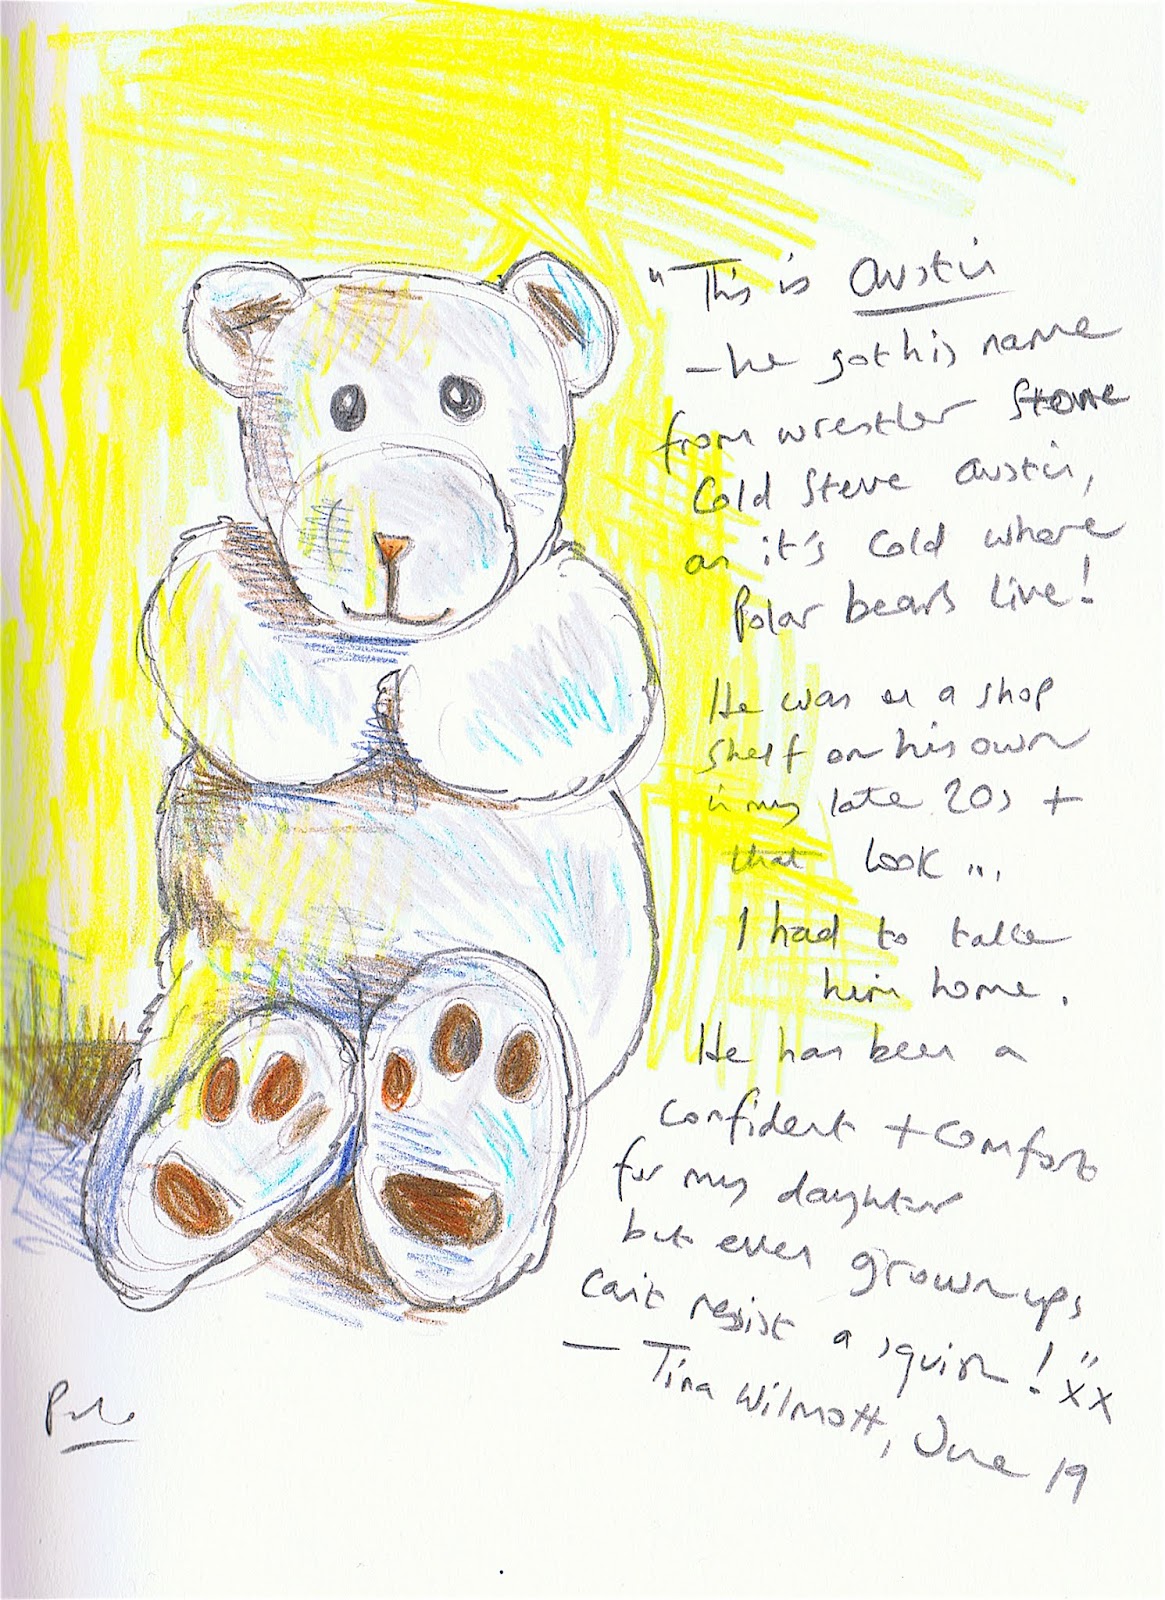 "This is Austin
- he got his name
from wrestler Stone
Cold Steve Austin,
as it's Cold where
Polar bears live!
He was on a shop
shelf on his own
in my late 20s +
that look ...
I had to take
him home.
He has been a
confident + comfort
for my daughter
but even grown ups
can't resist a squish!" xx
- Tina Wilmott, June 19